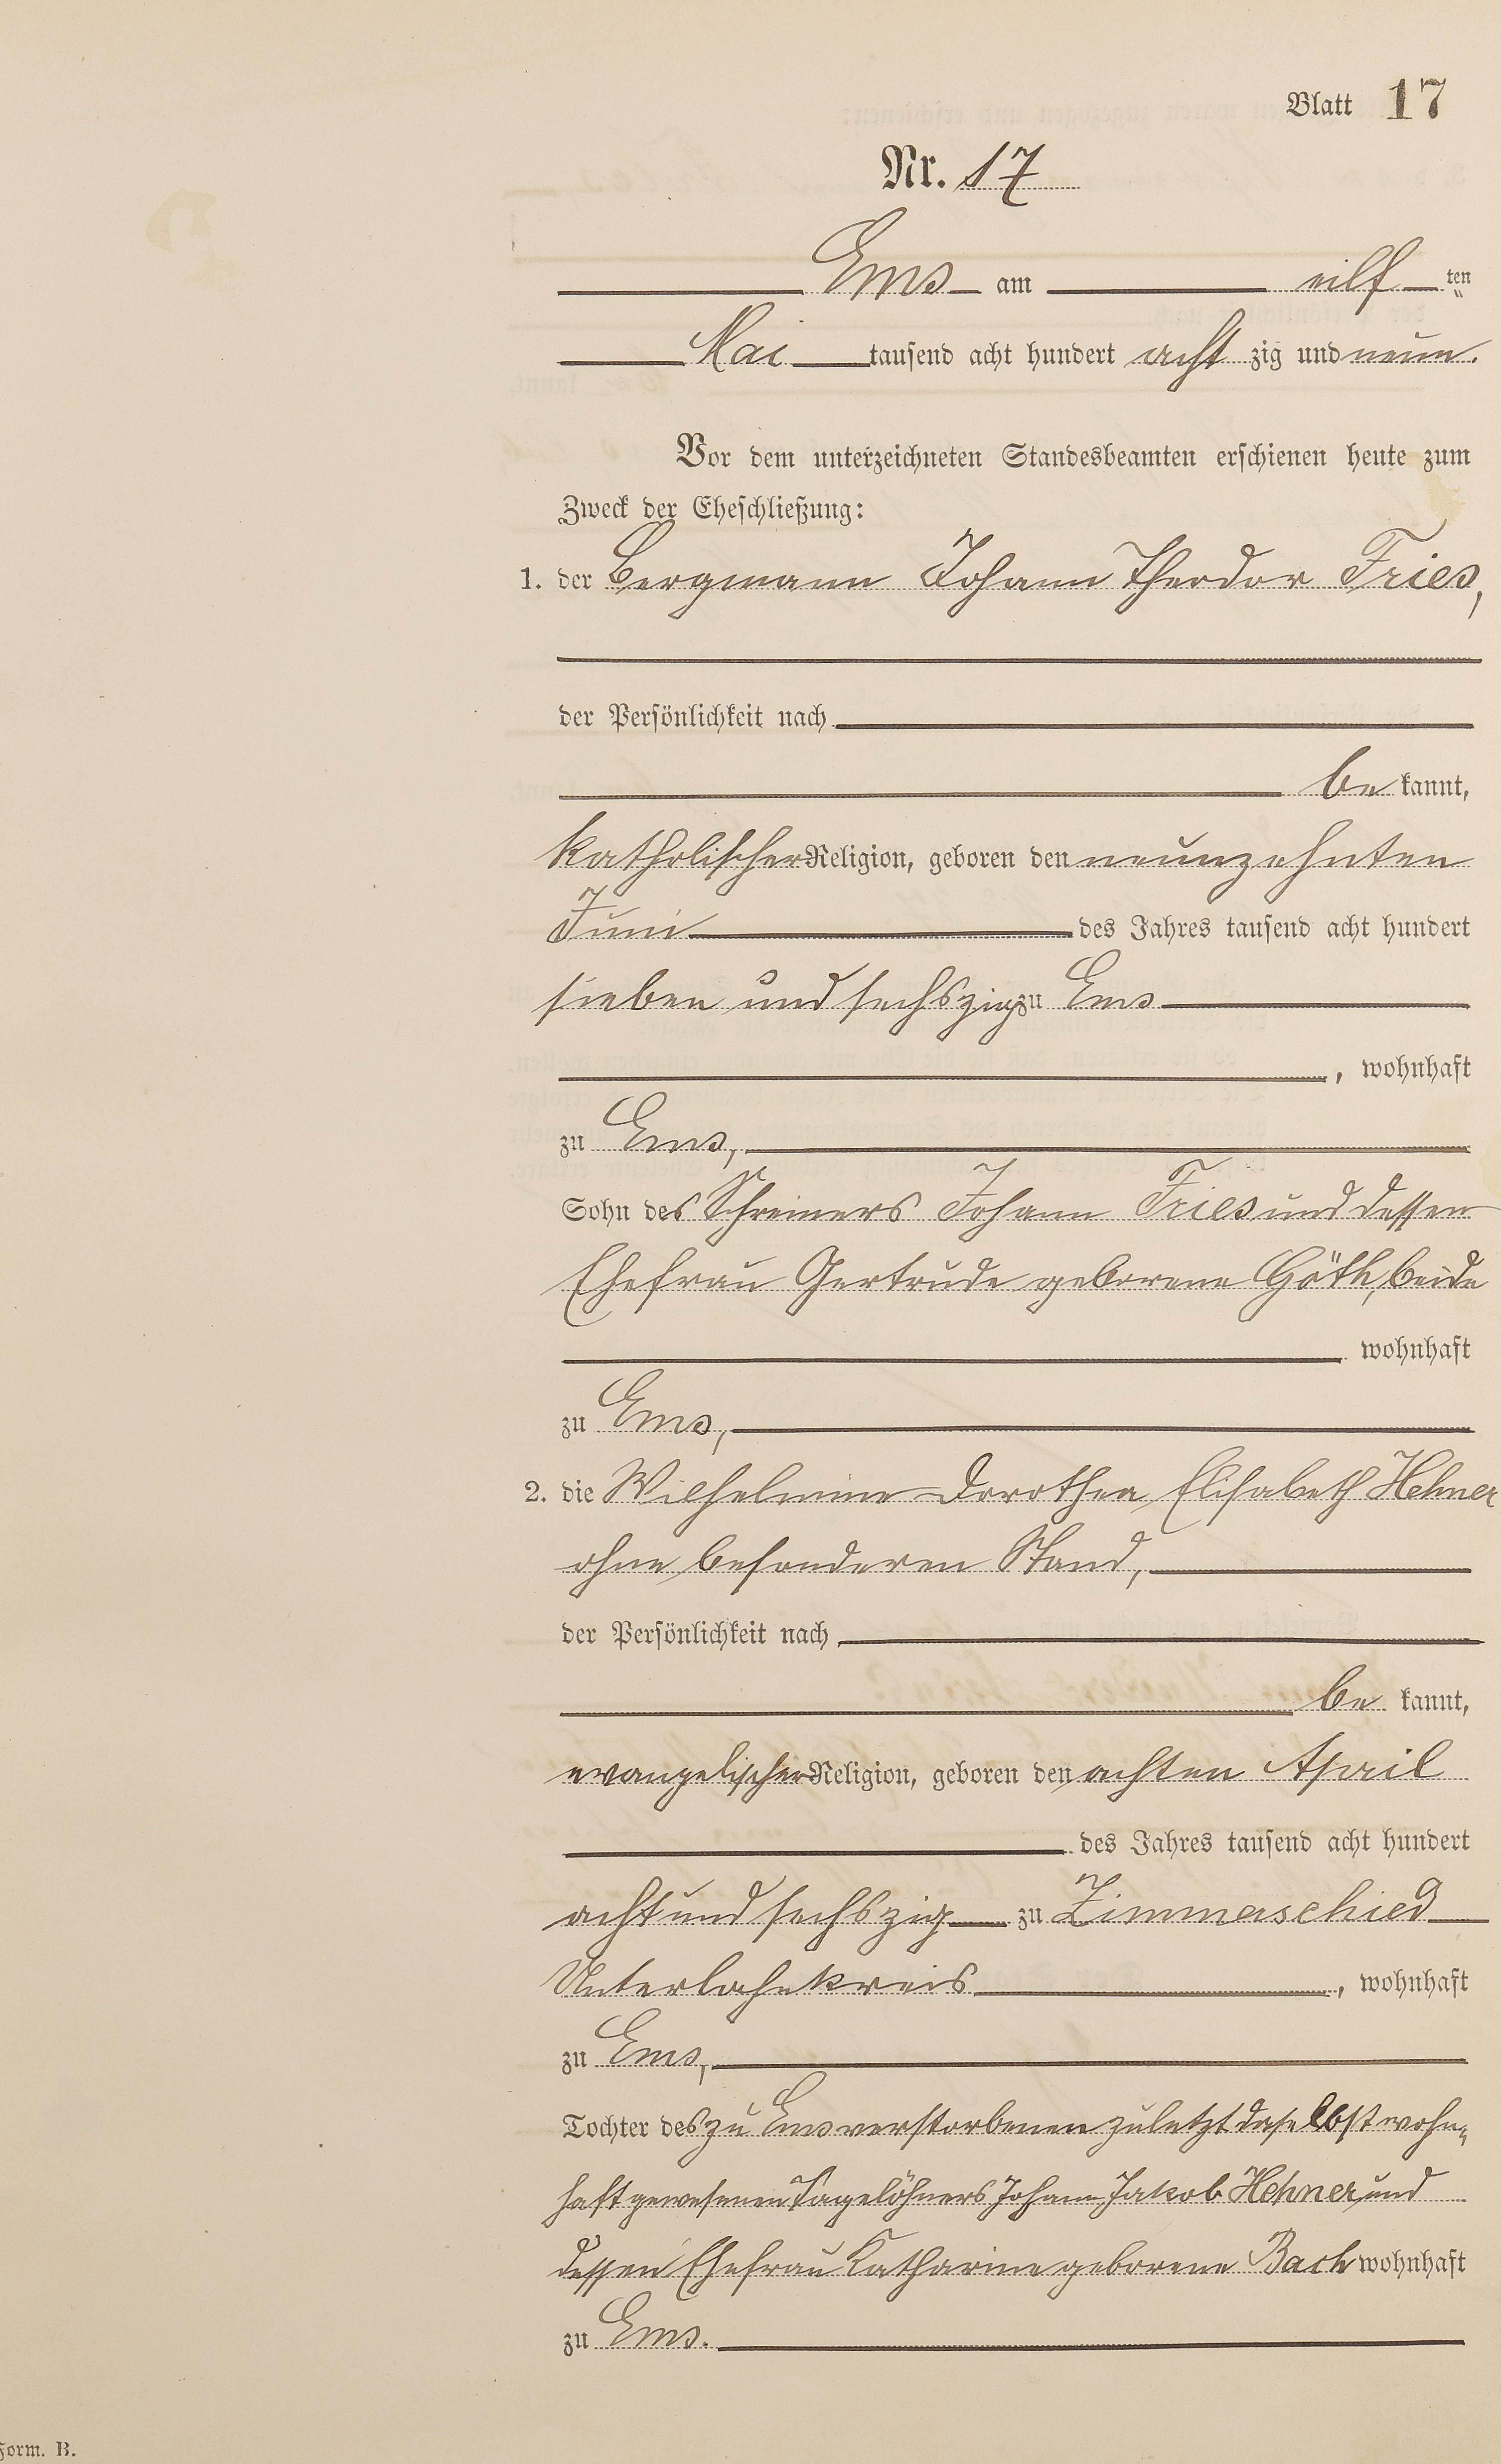 Blatt 17
Nr. 17
Ems am eilf ten
Mai tausend acht hundert acht zig und neun.
Vor dem unterzeichneten Standesbeamten erschienen heute zum
Zweck der Eheschließung:
1. der Bergmann Johann Theodor Fries,
der Persönlichkeit nach
be kannt,
katholischer Religion, geboren den neunzehnten
Juni des Jahres tausend acht hundert
sieben und sechszig zu Ems
, wohnhaft
zu Ems,
Sohn des Schreiners Johann Fries und dessen
Ehefrau Gertrude geborene Göth, beide
wohnhaft
zu Ems,
2. die Wilhelmine Dorothea Elisabeth Hehner
ohne besonderen Stand,
der Persönlichkeit nach
be kannt,
evangelischer Religion, geboren den achten April
des Jahres tausend acht hundert
acht und sechszig zu Zimmerschied
Unterlahnkreis, wohnhaft
zu Ems,
Tochter des zu Ems verstorbenen zuletzt daselbst wohn„
haft gewesenen Tagelöhners Johann Jakob Hehner und
dessen Ehefrau Katharine geborene Bach wohnhaft
zu Ems.
Form. B.